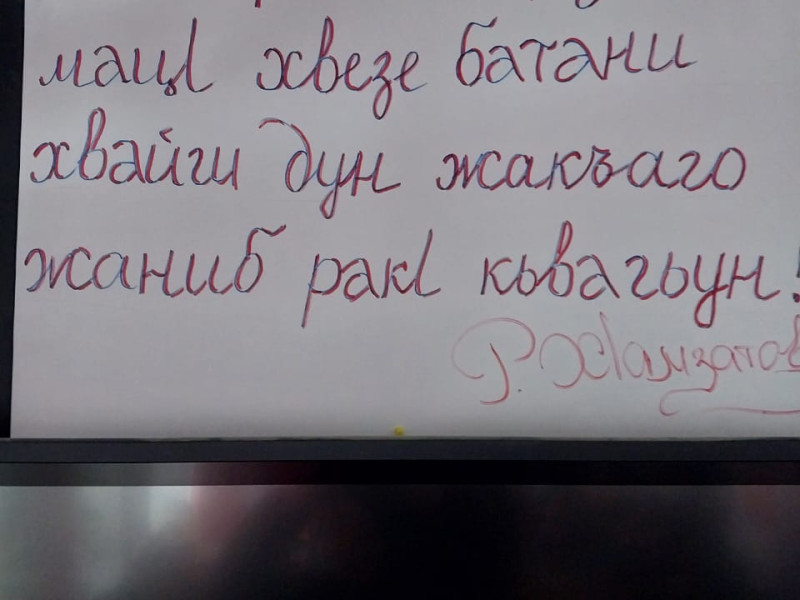 мацӀ хвезе батани
хвайги дун жакъаго
жаниб ракӀ кьвагьун!
Р. ХӀамзатов